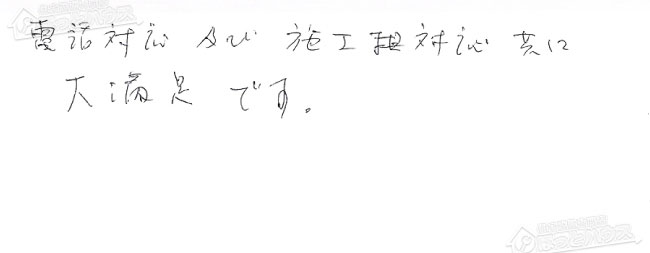 電話対応 及び 施工担対応 共に
大満足 です。